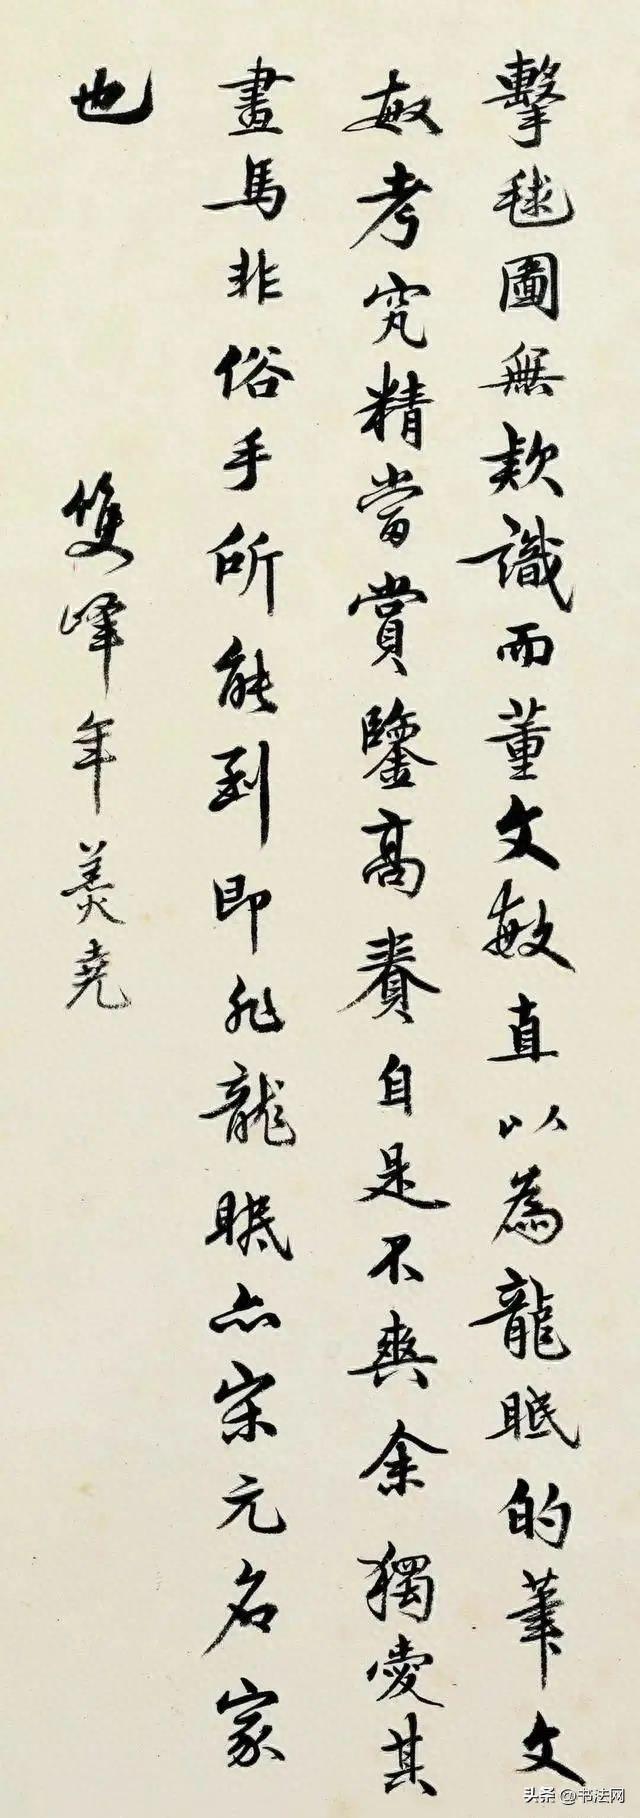 擊毬圖無款識而董文敏直以為龍眠的筆文
敏考究精當賞鑒高賽自是不爽余獨愛其
畫馬非俗手所能到即非龍眠亦宋元名家
也
雙峰年羹堯
头条 @书法网